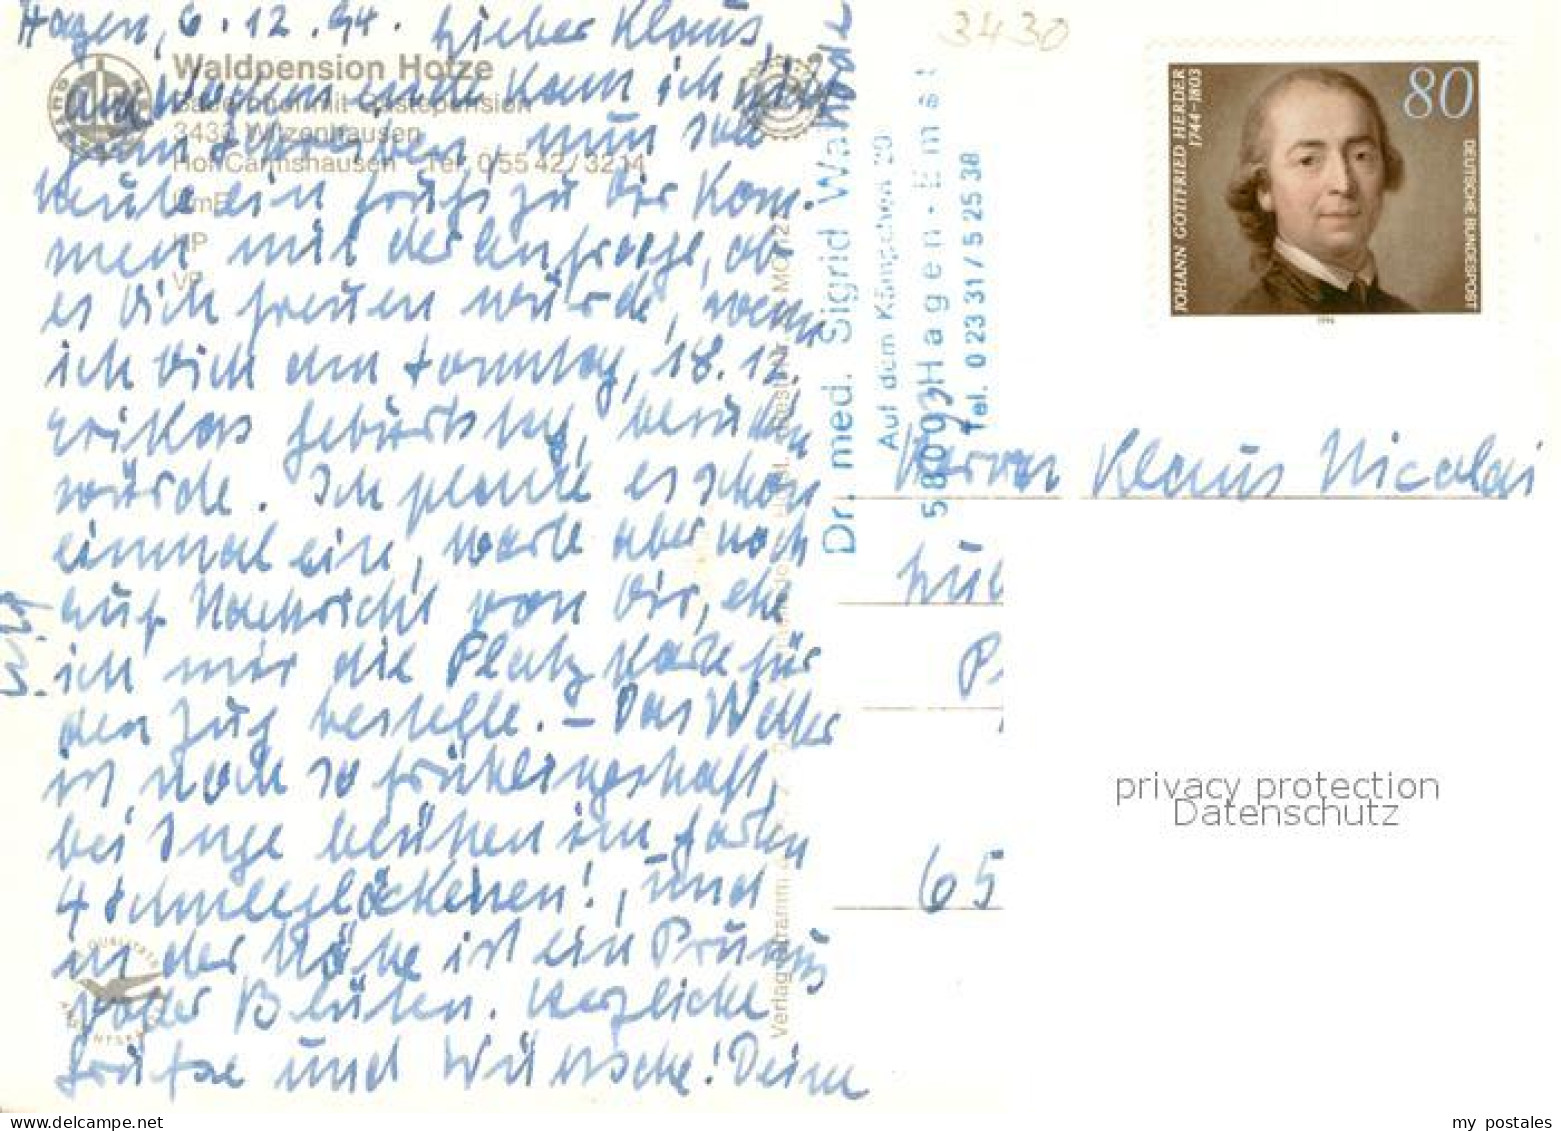 Hagen, 6.12.94. Lieber Klaus,
am Wochenende kam ich nicht
zum Schreiben, nun soll
heute ein Gruß zu Dir kom-
men mit der Anfrage, ob
es Dich freuen würde, wenn
ich Dich am Sonntag, 18.12.
Erikas Geburtstag, besuchen
würde. Ich plante es schon
einmal ein, warte aber noch
auf Nachricht von Dir, ehe
ich mir die Platzkarte für
den Zug bestelle. – Das Wetter
ist noch so frühlingshaft,
bei Inge blühen im Garten
4 Schneeglöckchen!, und
in der Nähe ist ein Prunus
voller Blüten. Herzliche
Grüße und Wünsche! Deine
Waldpension Hotze
Bauernhof mit Gästepension
3430 Witzenhausen
Hof Carmshausen Tel. 0 55 42 / 3214
ÜmF
HP
VP
Dr. med. Sigrid
Auf dem Kämpchen 20
58093 Hagen-Emst
Tel. 0 23 31 / 5 25 38
3430
JOHANN GOTTFRIED HERDER
1744-1803
80
DEUTSCHE BUNDESPOST
1994
Herrn Klaus Nicolai
65
privacy protection
Datenschutz
my postales